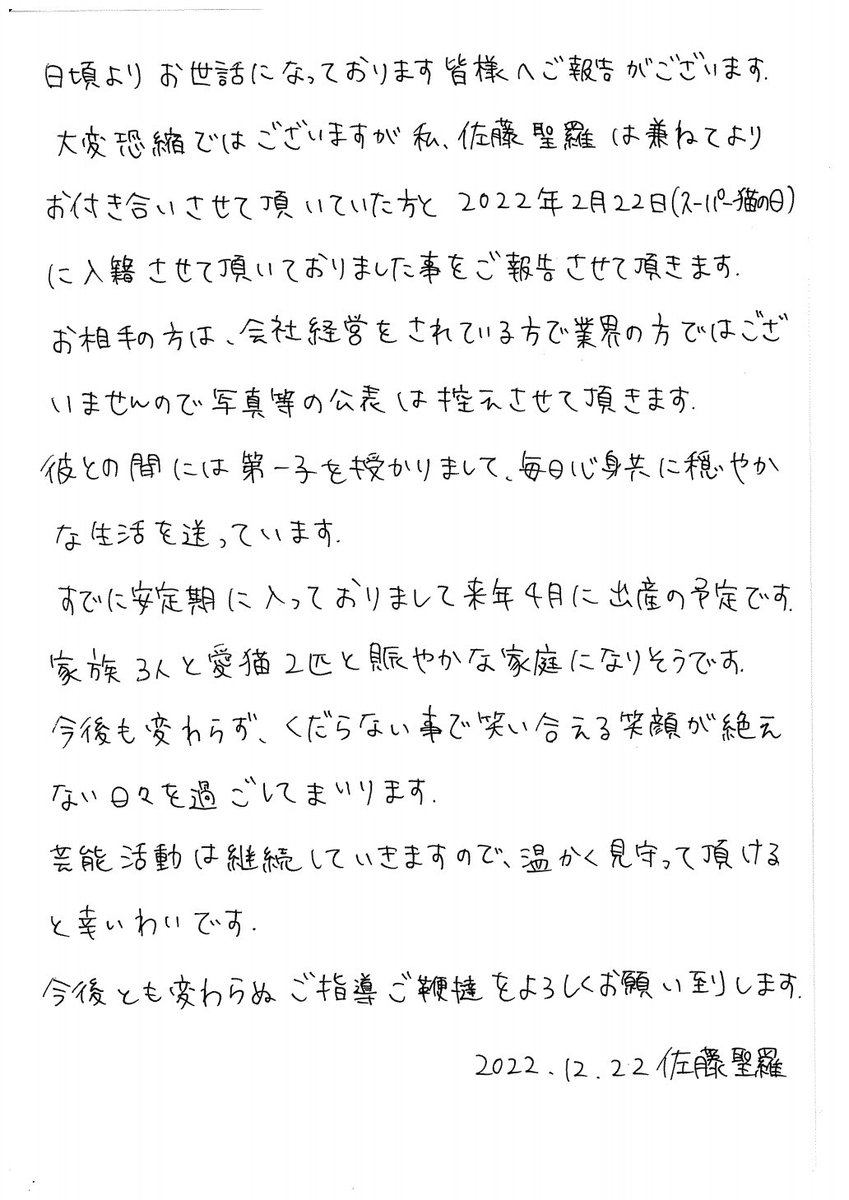 日頃より お世話になっております皆様へご報告がございます.
大変恐縮ではございますが私、佐藤聖羅は兼ねてより
お付き合いさせて頂いていた方と 2022年2月22日(スーパー猫の日)
に入籍させて頂いておりました事をご報告させて頂きます.
お相手の方は、会社経営をされている方で業界の方ではござ
いませんので写真等の公表は控えさせて頂きます.
彼との間には第一子を授かりまして、毎日心身共に穏やか
な生活を送っています.
すでに安定期に入っておりまして来年4月に出産の予定です.
家族3人と愛猫2匹と賑やかな家庭になりそうです.
今後も変わらず、くだらない事で笑い合える笑顔が絶え
ない日々を過ごしてまいります.
芸能活動は継続していきますので、温かく見守って頂ける
と幸いわいです.
今後とも変わらぬご指導ご鞭撻をよろしくお願い到します.
2022.12.22 佐藤聖羅